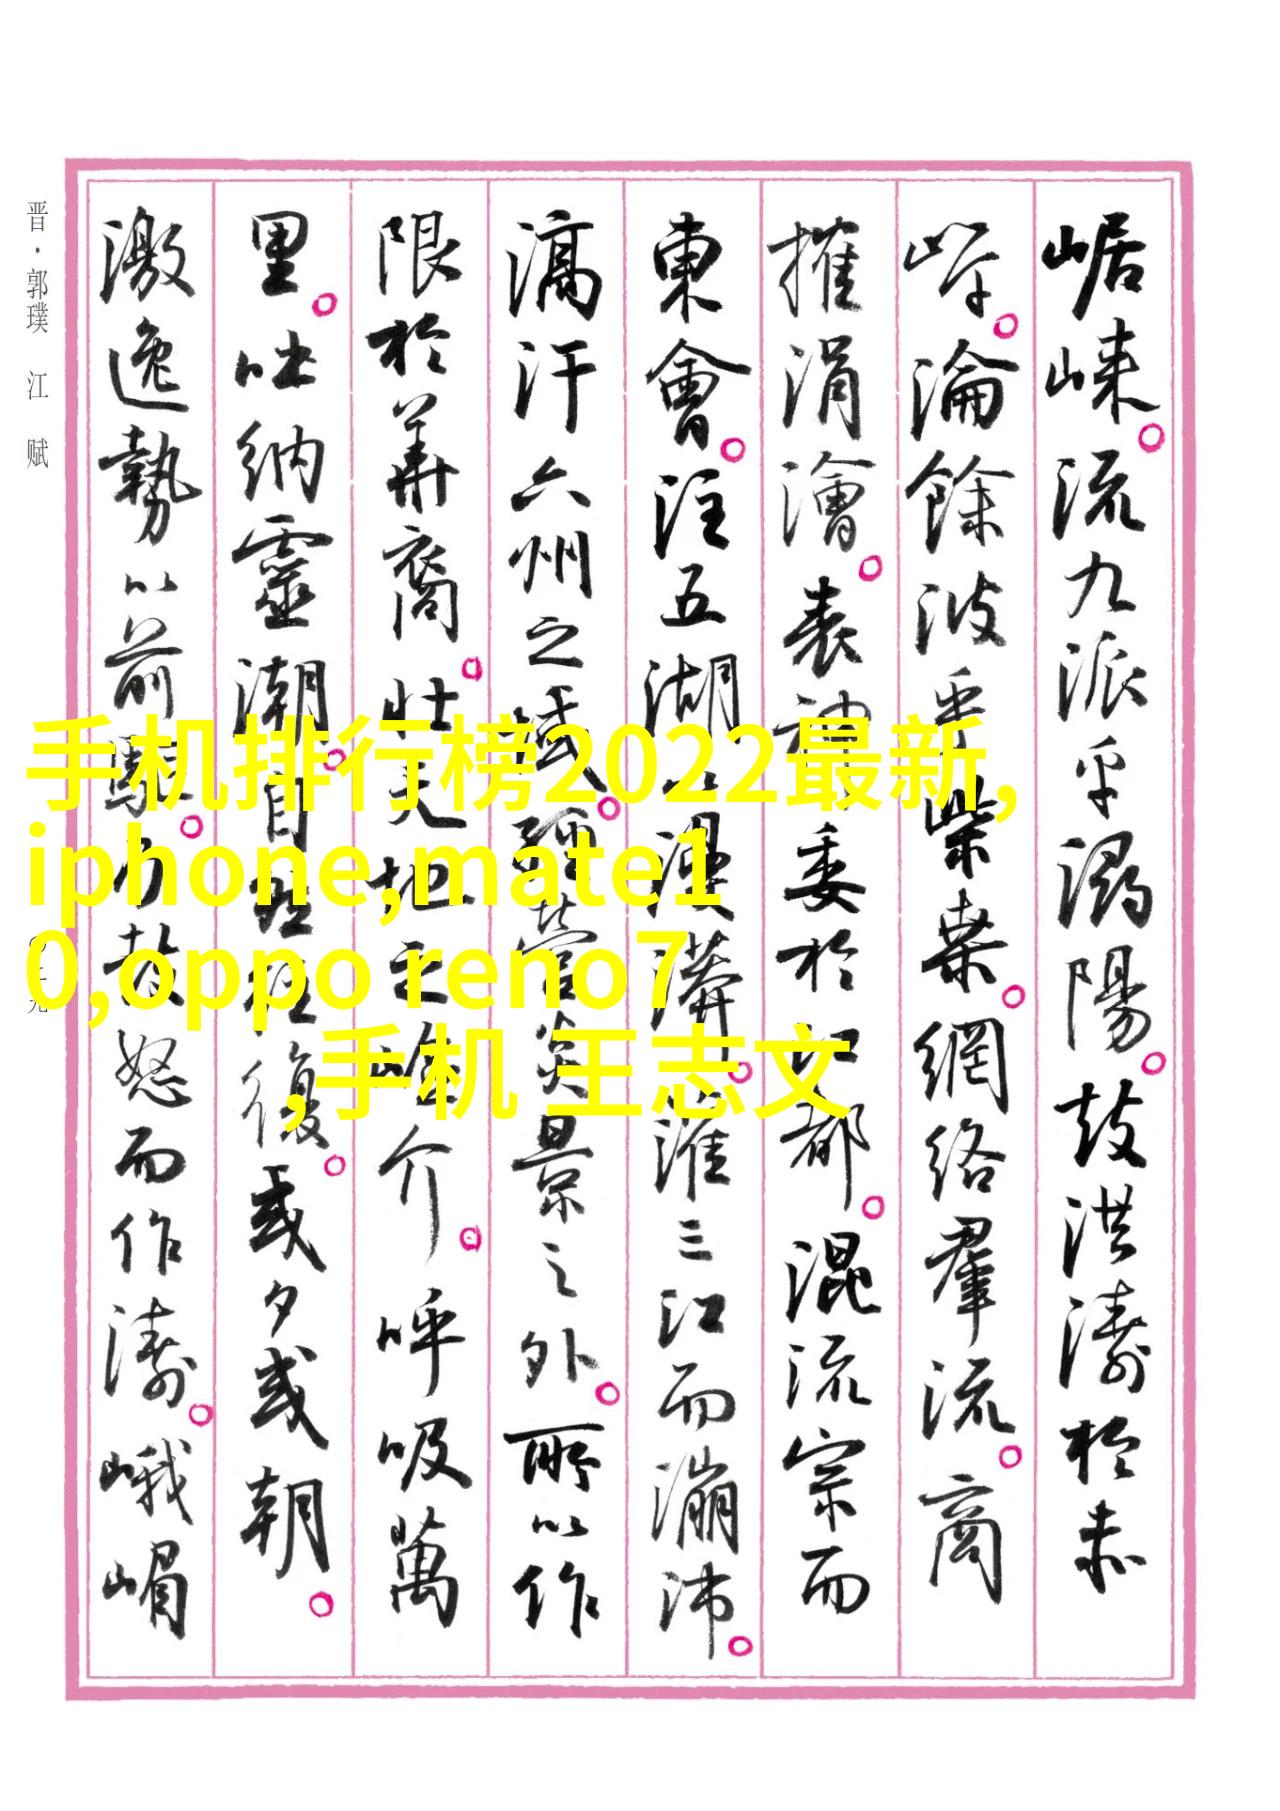 崌崍。流九派乎潯陽。鼓洪濤於赤
岸。淪餘波乎柴桑。網絡羣流。商
搉涓澮。表神委於江都。混流宗而
東會。注五湖以漫漭。灌三江而漰沛。
滈汗六州之域。經營炎景之外。所以作
限於華裔。壯天地之嶮介。呼吸萬
里。吐納靈潮。自然往復。或夕或朝。
激逸勢以前驅。乃鼓怒而作濤。峨嵋
晋·郭璞 江 赋
手机排行榜2022最新,
iphone,mate1
0,oppo reno7
,手机 王志文